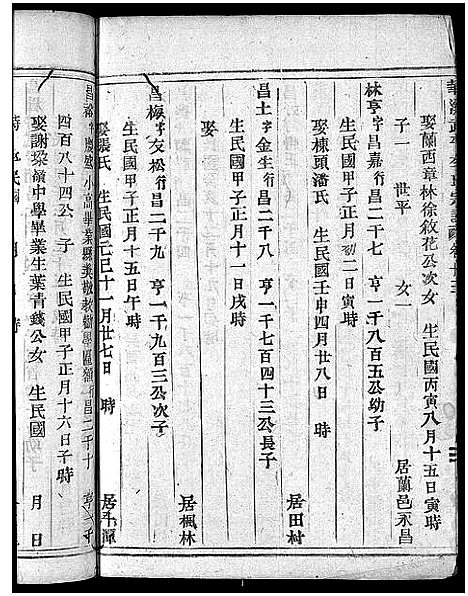 娶蘭西章林徐敘花公次女 生民國丙寅八月十五日寅時
子一 世平 女一 居蘭邑永昌
林亨字昌嘉行昌二千七 亨一千八百五公幼子
生民國甲子正月初二日寅時
娶棟頭潘氏 生民國壬申四月廿八日 時
居田村
昌土字金生行昌二千八 亨一千七百四十三公長子
生民國甲子正月十一日戌時
娶
居楓林
昌梅字交松行昌二千九 亨一千九百三公次子
生民國甲子正月十五日午時
娶張氏 生民國己巳十一月廿七日 時
居
昌 字慶 小高畢業縣 行昌二千十 亨一千
四百八十四公 子 生民國甲子正月十六日子時
娶謝 嶺中學畢業生葉青錢公女 生民國 月 日